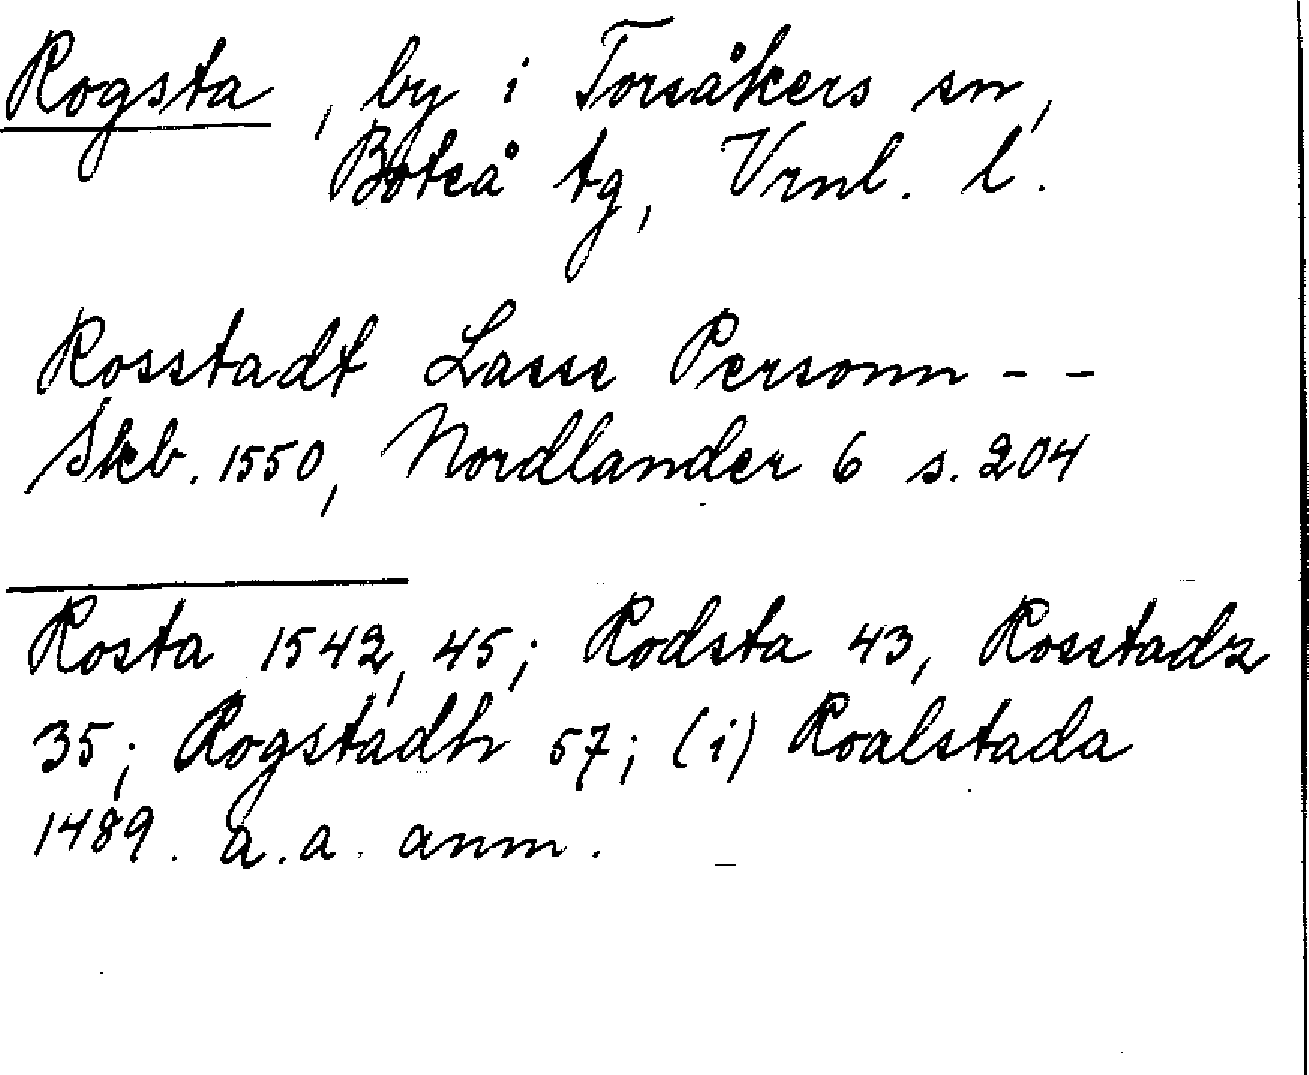 Rogsta, by i Torsåkers sn,
Boteå tg, Vrnl. l.
Rosstadt Lasse Personn - -
Skb. 1550, Nordlander 6 s. 204
Rosta 1542, 45; Rodsta 43, Rosstadz
35; Rogstadh 57; (i) Roalstada
1489. a.a. anm.